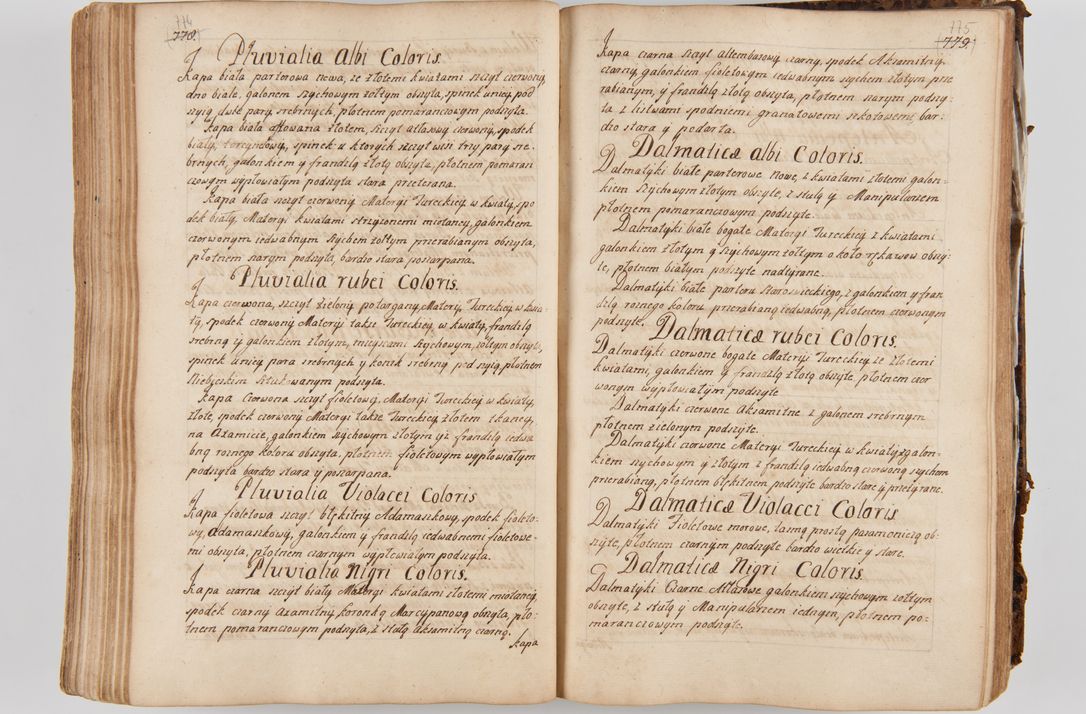 774
778.
Pluvialia Albi Coloris.
Kapa biała parterowa nowa, ze złotemi kwiatami szczyt czerwony,
dno białe, galonem szychowym żółtym obszyta, spinek u niey pod
szyią, dwie pary srebrnych, płotnem pomaranczowym podszyta.
Kapa biała aftowana złotem, szczyt atłasowy czerwony, spodek
biały, spinek u ktorych szczyt wisi trzy pary sre-
brnych, galonkiem y frandzlą złotą obszyta, płotnem pomaran
czowym wypłowiałym podszyta stara przetarta.
Kapa biała szczyt czerwony Materyi Tureckiey w kwiaty, spo
dek biały, Materyi kwiatami strzyżonemi miotaney, galonkiem
czerwonym iedwabnym szychem żółtym przerabianym obszyta,
płotnem szarym podszyta, bardzo stara poszarpana.
Pluvialia rubei Coloris.
Kapa czerwona, szczyt zielony potargany, Materij Tureckiey w kwia-
ty, spodek czerwony Materyi także Tureckiey w kwiaty, frandzlą
srebrną y galonkiem złotym, mieyscami szychowym, żółtym obszyta,
spinek u niey para srebrnych y konik srebrny pod szyią, płotnem
Niebieskim sztukowanym podszyta.
Kapa Czerwona szczyt fioletowy, Materyi Tureckiey w kwiaty,
złote, spodek czerwony Materyi także Tureckiey złotem tkaney,
na Axamicie, galonkiem szychowym złotym y z frandzlą iedwa
bną rożnego koloru obszyta, płotnem fioletowym wypłowiałym
podszyta bardzo stara y poszarpana.
Pluvialia Violacei Coloris
Kapa fioletowa szczyt błękitny Adamaszkowy, spodek fioleto-
wy, Adamaszkowy, galonkiem y frandzlą iedwabnemi fioletowe-
mi obszyta, płotnem czarnym wypłowiałym podszyta.
Pluvialia Nigri Coloris.
Kapa czarna szczyt biały Materyi kwiatami złotemi miotaney,
spodek czarny Axamitny koronką Marcypanową obszyta, pło-
tnem pomaranczowym podszyta, z stułą Aksamitną czarną.
Kapa
775
779
Kapa czarna szczyt altembasowy czarny, spodek Aksamitny
czarny, galonkiem fioletowym iedwabnym szychem złotym prze
rabianym, y frandzlą złotą obszyta, płotnem szarym podszy-
ta z listwami spodniemi granatowemi bar-
dzo stara y podarta.
Dalmaticæ albi Coloris.
Dalmatyki białe parterowe Nowe, z kwiatami złotemi galon-
kiem szychowym złotym obszyte, z stułą y Manipularzem
płotnem pomaranczowym podszyte.
Dalmatyki białe bogate Materyi Tureckiey z kwiatami
galonkiem złotym y szychowym żółtym około rękawow obszy-
te, płotnem białym podszyte nadtyrane.
Dalmatyki białe parteru Staroswieckiego, z galonkiem y fran
dzlą rożnego koloru przerabianą iedwabną, płotnem czerwonym
podszyte.
Dalmaticæ rubei Coloris.
Dalmatyki czerwone bogate Materyi Tureckiey ze złotemi
kwiatami, galonkiem y frandzlą złotą obszyte, płotnem czer
wonym wypłowiałym podszyte
Dalmatyki czerwone aksamitne z galonem srebrnym
płotnem zielonym podszyte.
Dalmatyki czerwone Materyi Tureckiey w kwiaty z galon-
kiem szychowym y złotym z frandzlą iedwabną czerwoną szychem
przerabianą, płotnem błękitnem podszyte bardzo stare y przetyrane.
Dalmaticæ Violacei Coloris
Dalmatyki Fioletowe morowe, taśmą prostą pasamoniczą ob-
szyte, płotnem czarnym podszyte bardzo wielkie y stare.
Dalmaticæ Nigri Coloris.
Dalmatyki Czarne Atłasowe galonkiem szychowym żółtym
obszyte, z stułą y Manipularzem iednym, płotnem po-
maranczowym podszyte.